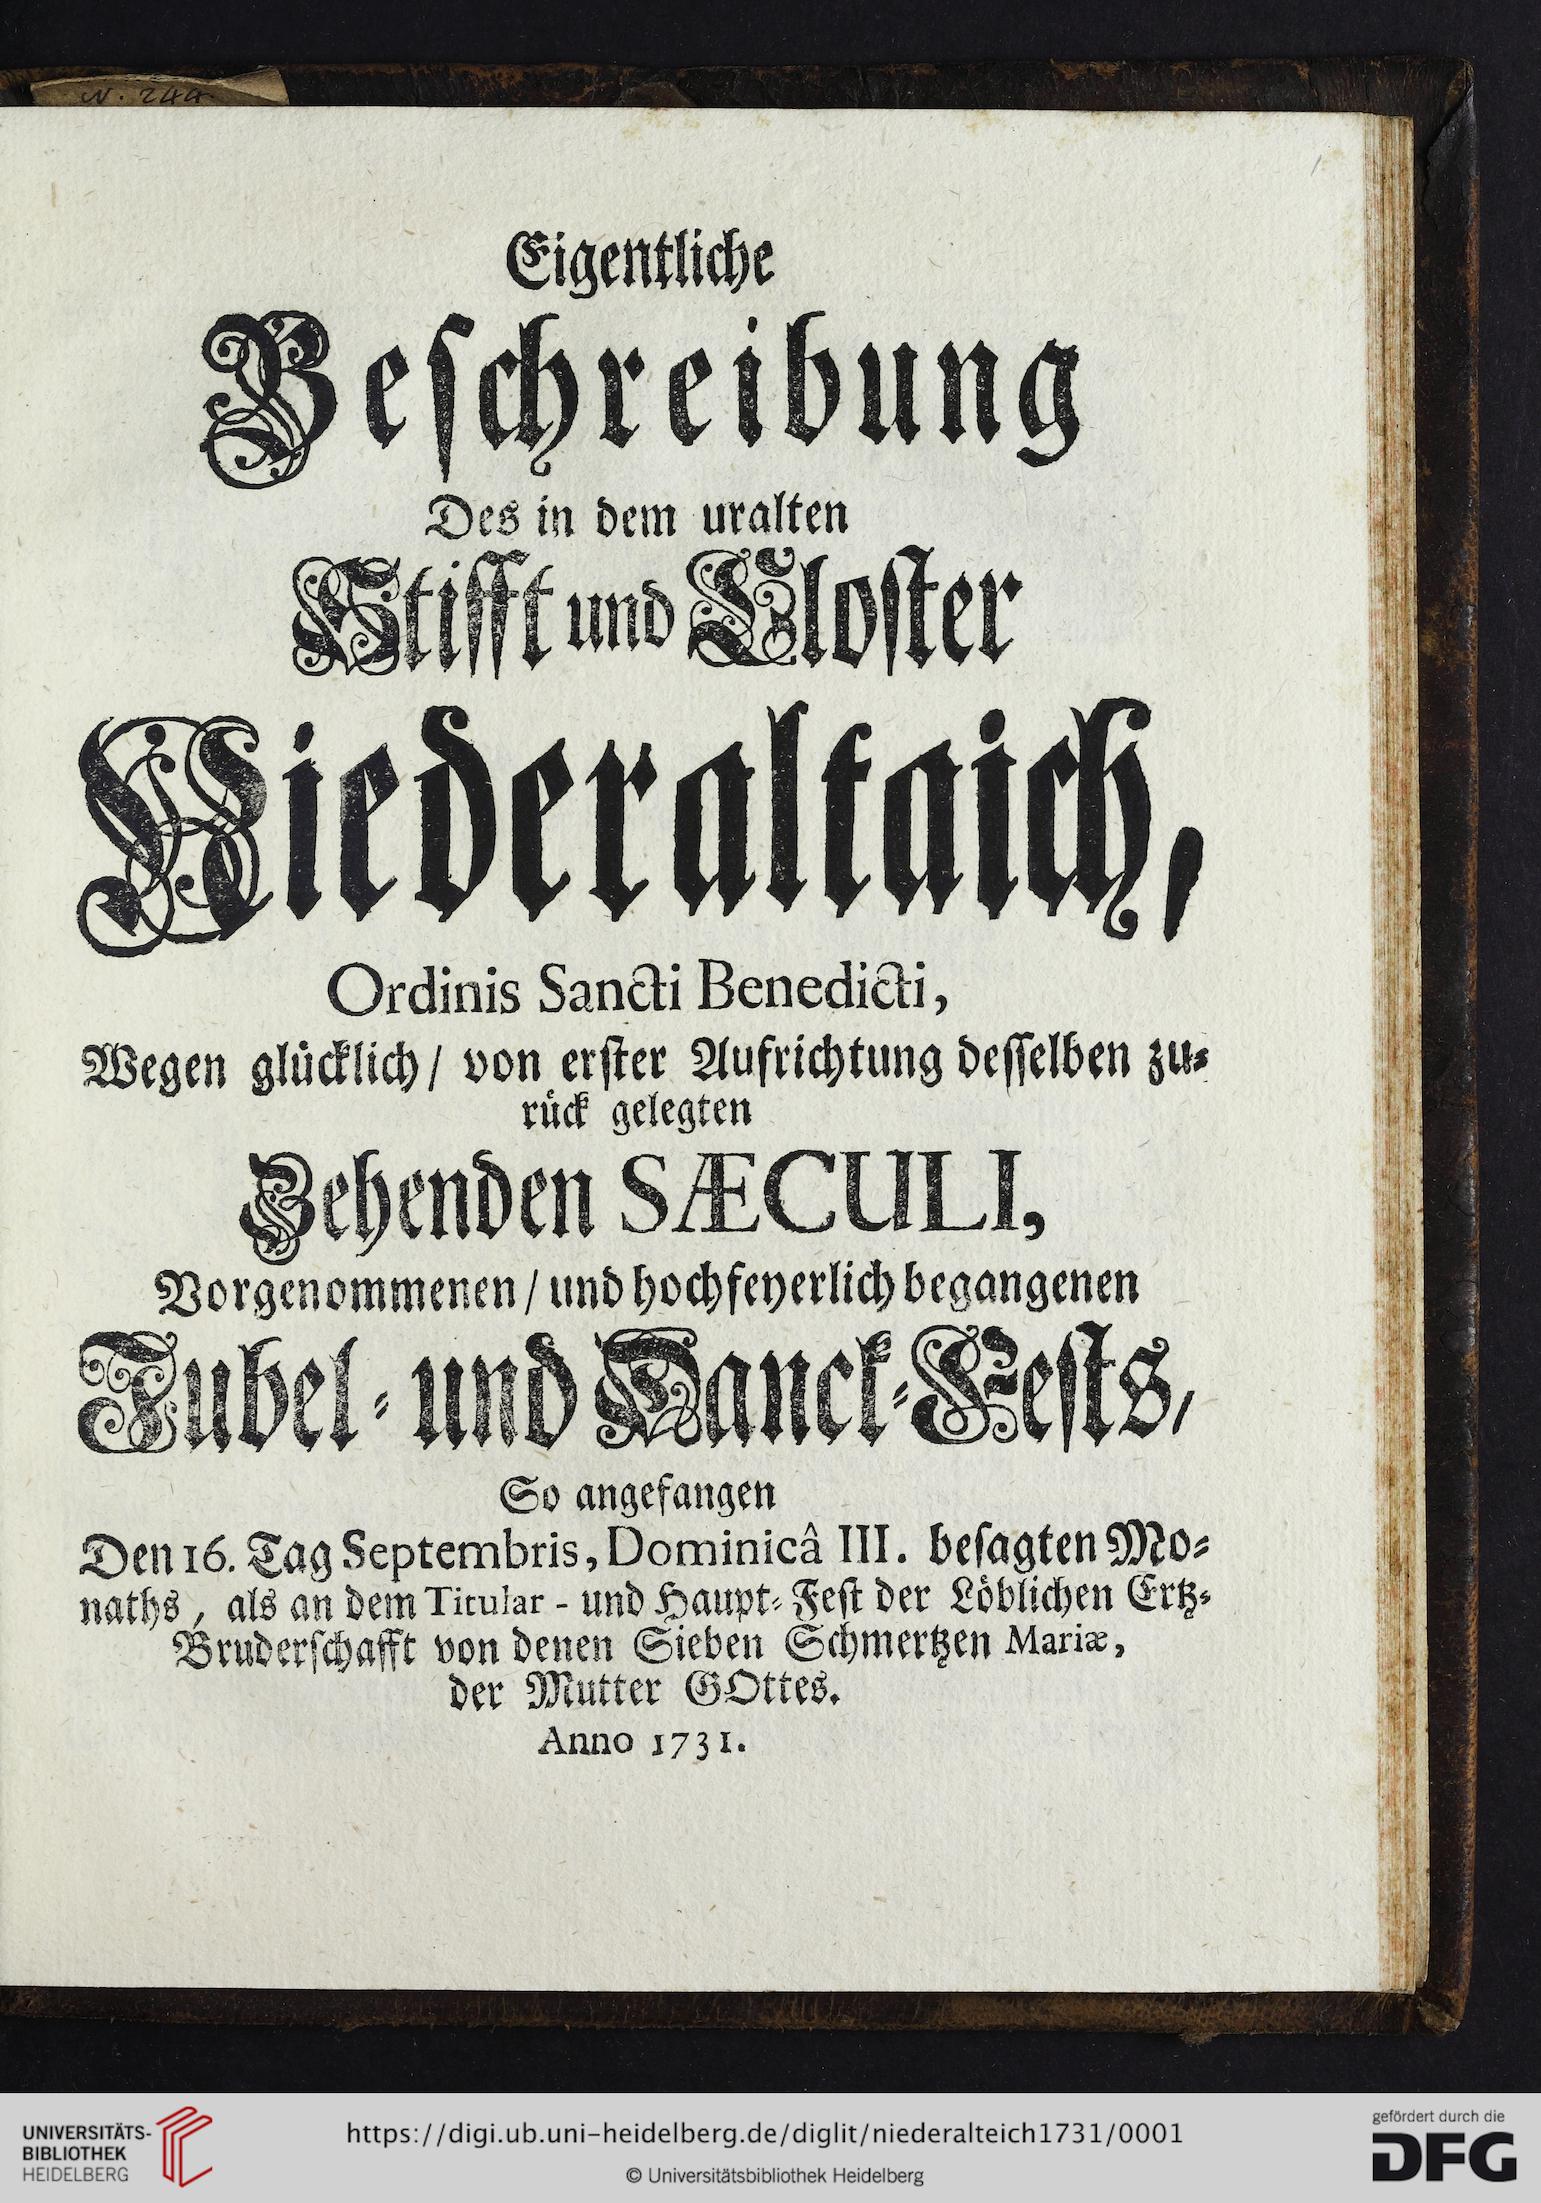 N. 244.
Eigentliche
Beſchreibung
Des in dem uralten
Stifft und Kloſter
Niederaltaich,
Ordinis Sancti Benedicti,
Wegen glücklich/ von erſter Aufrichtung deſſelben zu⸗
rück gelegten
Zehenden SÆCULI,
Vorgenommenen/ und hochfeyerlich begangenen
Jubel⸗ und Danck⸗Feſts,
So angefangen
Den 16. Tag Septembris, Dominicâ III. beſagten Mo⸗
naths, als an dem Titular - und Haupt⸗Feſt der Löblichen Ertz⸗
Bruderſchafft von denen Sieben Schmertzen Mariæ,
der Mutter GOttes.
Anno 1731.
UNIVERSITÄTS-
BIBLIOTHEK
HEIDELBERG
https://digi.ub.uni-heidelberg.de/diglit/niederalteich1731/0001
© Universitätsbibliothek Heidelberg
gefördert durch die
DFG